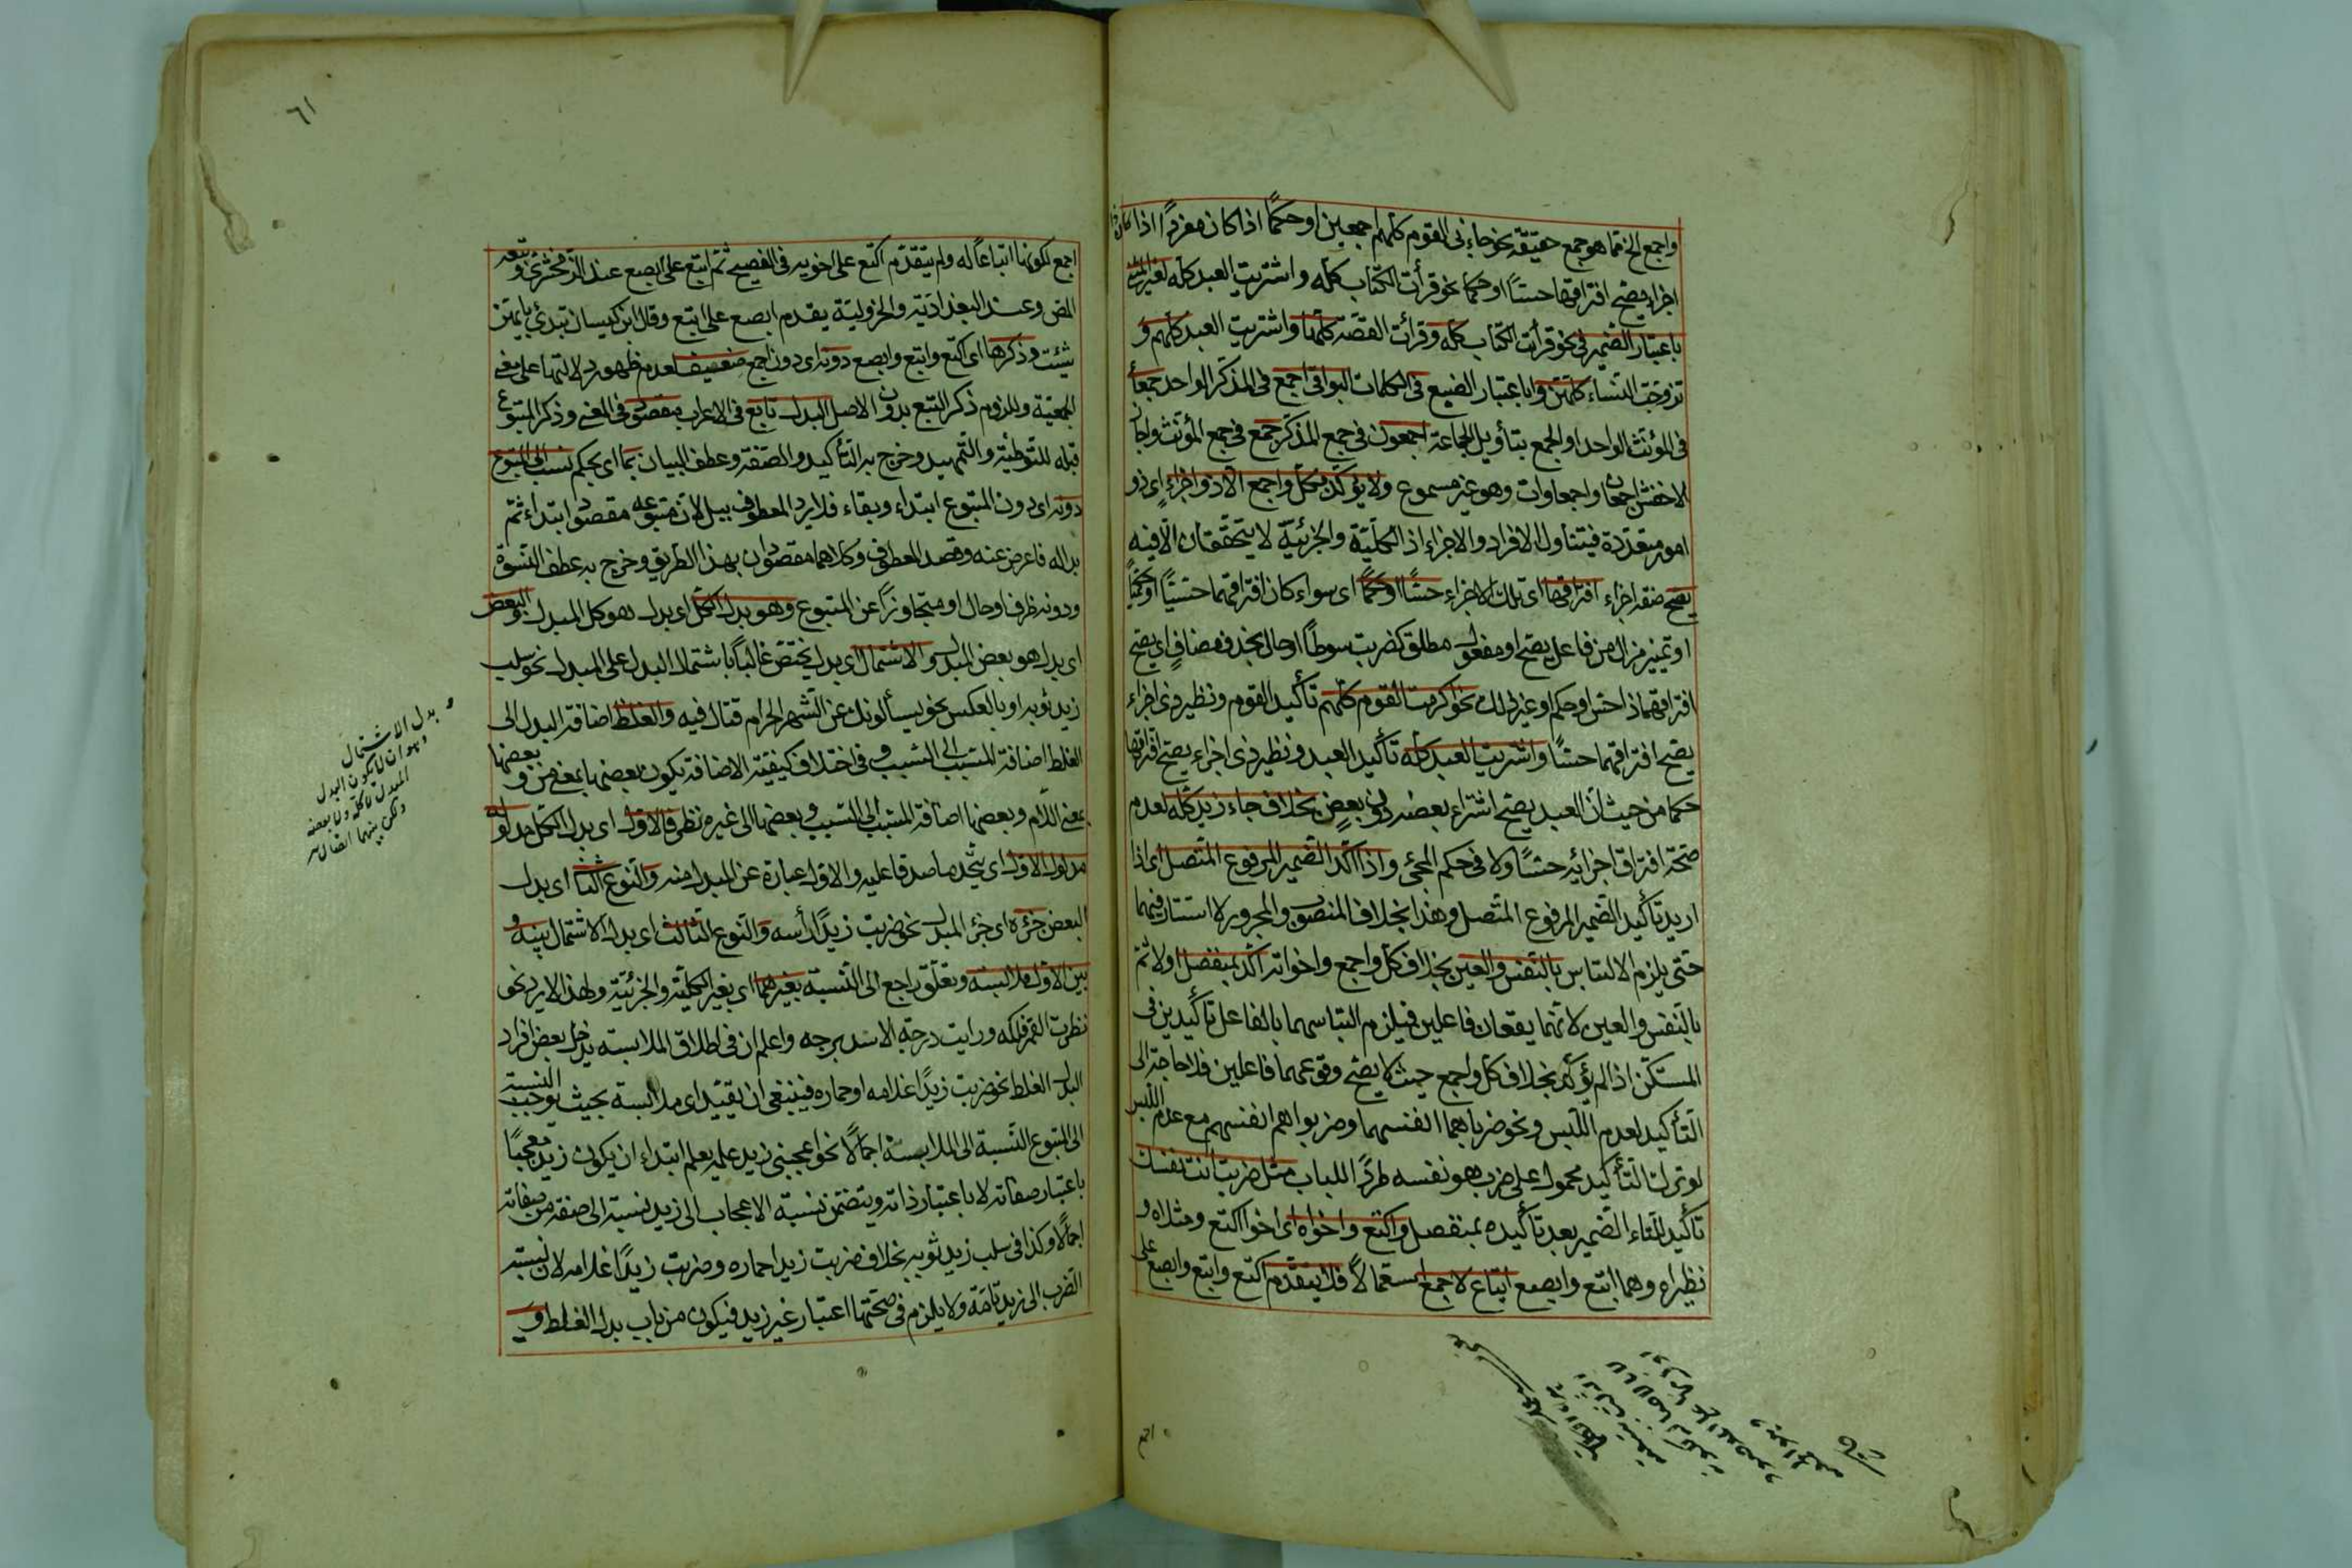 واجمع الخ مما هو جمع حقيقة نحو جاءنى القوم كلهم اجمعين او حكمًا اذا كان مفردًا اذا كان ذا
اجزاء يصح افتراقها حسًّا او حكما نحو قرأت الكتاب كله واشتريت العبد كله لغير المثنى
باعتبار الضمير فى نحو قرأت الكتاب كله وقرأت القصّة كلّها واشتريت العبد كلهم و
تزوجت النساء كلهنّ واباعتبار الصيغ فى الكلمات البواقى اجمع فى المذكر الواحد جمعأ
فى المؤنث الواحد او الجمع بتأويل الجماعة اجمعون فى جمع المذكر جمع فى جمع المؤنث واجاز
الاخفش اجمعان واجمعاوات وهو غير مسموع ولا يؤكّد بكل واجمع الّا ذو اجزاءٍ اى ذو
امور متعدّدة فيتناول الافراد والاجزاء اذ الكلّيّة والجزئيّة لا يتحققان الّا فيه
يصح صفة اجزاء افتراقها اى تلك الاجزاء حسًّا او حكمًا اى سواء كان افتراقهما حسّيًّا او حكميًّا
او تمييز مزال من فاعل يصح او مفعول مطلق كضربت سوطًا او حال بحذف مضافٍ اى يصح
افتراقهما ذا حسّ او حكم او غير ذلك نحو اكرمت القوم كلّهم تأكيد القوم ونظير ذى اجزاء
يصح افتراقهما حسًّا واشتريت العبد كله تأكيد العبد ونظير ذى اجزاء يصح افتراقها
حكما من حيث ان العبد يصح اشتراء بعضه دون بعضٍ بخلاف جاء زيد كله لعدم
صحّة افتراق اجزائه حسًّا ولا فى حكم المجئ واذا اكّد الضمير المرفوع المتّصل اى اذا
اريد تأكيد الضمير المرفوع المتّصل وهذا بخلاف المنصوب والمجرور لا استتار فيهما
حتى يلزم الالتباس بالنفس والعين بخلاف كل واجمع واخواته اكّد بمنفصل اولا ثم
بالنفس والعين لانهما يقعان فاعلين فيلزم التباسهما بالفاعل تأكيدين فى
المستكن اذا لم يؤكّد بخلاف كل واجمع حيث لا يصح وقوعهما فاعلين فلا حاجة الى
التأكيد لعدم اللبس ونحو ضرباهما انفسهما وضربوا هم انفسهم مع عدم اللبس
لو ترك التأكيد محمول على ضرب هو نفسه طردًا للباب مثل ضربت انت نفسك
تأكيد للتاء الضمير بعد تأكيده بمنفصل واكتع واخواه اى اخوا اكتع ومثلاه و
نظيراه وهما ابتع وابصع اتباع لاجمع استعمالًا فلا يتقدّم اكتع وابتع وابصع على
اجمع
٦١
اجمع لكونها اتباعًا له ولم يتقدّم اكتع على اخويه فى الفصيح ثم ابتع على ابصع عند الزمخشرى وتبعه
المص وعند البغدادية والجزولية يقدم ابصع على ابتع وقال ابن كيسان تبدئ بايّتهن
شئت وذكرها اى اكتع وابتع وابصع دونه اى دون اجمع ضعيف لعدم ظهور دلالتها على معنى
الجمعيّة وللزوم ذكر التبع بدون الاصل البدل تابع فى الاعراب مقصود فى المعنى وذكر المتبوع
قبله للتوطئة والتمهيد وخرج به التأكيد والصفة وعطف البيان بما اى بحكم نسب الى المتبوع
دونه اى دون المتبوع ابتداء وبقاء فلا يرد المعطوف ببل لان متبوعه مقصود ابتداء ثم
بدا له فاعرض عنه وقصد المعطوف وكلاهما مقصودان بهذا الطريق وخرج به عطف النسق
ودونه ظرف او حال او متجاوزًا عن المتبوع وهو بدل الكل اى بدل هو كل المبدل والبعض
اى بدل هو بعض المبدل والاشتمال اى بدل يختصّ غالبًا باشتمال البدل على المبدل نحو سلب
زيد ثوبه او بالعكس نحو يسألونك عن الشهر الحرام قتال فيه والغلط اضافة البدل الى
الغلط اضافة المسبّب الى السبب وفى اختلاف كيفيّة الاضافة يكون بعضها بمعنى من وبعضها
بمعنى اللام وبعضها اضافة المسبب الى السبب وبعضها الى غيره نظر فالاول اى بدل الكل مدلوله
مدلول الاول اى يتّحد ما صدقا عليه والاول عبارة عن المبدل منه والنوع الثانى اى بدل
البعض جزؤه اى جزء المبدل نحو ضربت زيدًا رأسه والنوع الثالث اى بدل الاشتمال بينه و
بين الاول ملابسة وتعلّق راجع الى النسبة بغيرهما اى بغير الكلّيّة والجزئيّة ولهذا لا يرد نحو
نظرت القمر فلكه ورايت درجة الاسد برجه واعلم ان فى اطلاق الملابسة يدخل بعض افراد
البدل الغلط نحو ضربت زيدًا غلامه او حماره فينبغى ان تقيّد اى ملابسة بحيث توجب النسبة
الى المتبوع النسبة الى الملابسة اجمالًا نحو اعجبنى زيد علمه يعلم ابتداء ان يكون زيد معجبًا
باعتبار صفاته لا باعتبار ذاته ويتضمّن نسبة الاعجاب الى زيد نسبته الى صفة من صفاته
اجمالًا وكذا فى سلب زيد ثوبه بخلاف ضربت زيدا حماره وضربت زيدًا غلامه لان نسبة
الضرب الى زيد تامّة ولا يلزم فى صحّتها اعتبار غير زيد فيكون من باب بدل الغلط و
بدل الاشتمال
وهو ان لا يكون البدل
المبدل لا كله ولا بعضه
ولكن بينهما اتصال